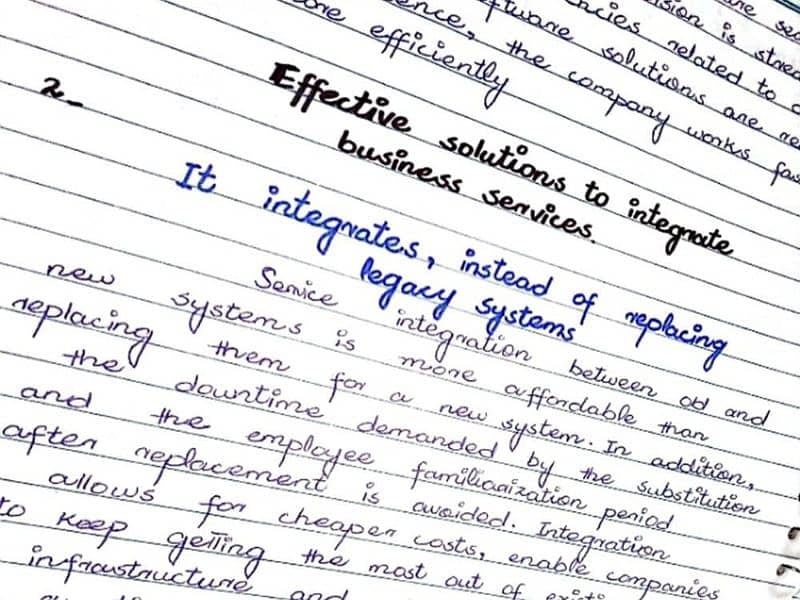 sion is stored
ence, the cies related to
tware solutions are
more efficiently the company works fas
2_ Effective solutions to integrate
business services.
It integrates, instead of replacing
legacy systems
Service integration between old and
new systems is more affordable than
replacing them for a new system. In addition,
the downtime demanded by the substitution
and the employee familiarization period
after replacement is avoided. Integration
allows for cheaper costs, enable companies
to keep getting the most out of
infraustructure and